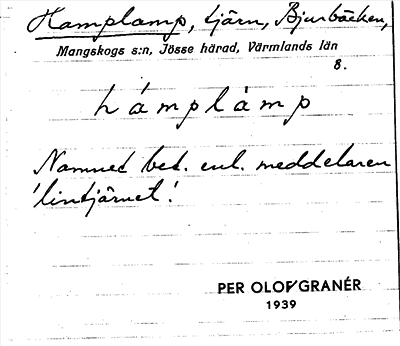 Hamplamp, tjärn, Bjurbäcken,
Mangskogs s:n, Jösse härad, Värmlands län
8.
hámplàmp
Namnet bet. enl. meddelaren
'lintjärnet'.
PER OLOF GRANÉR
1939